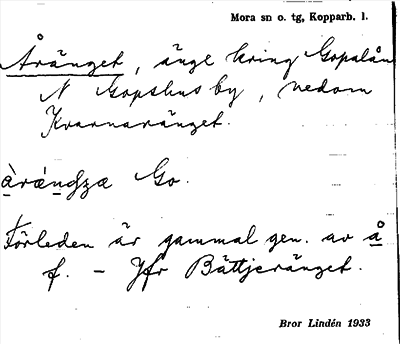 Mora sn o. tg, Kopparb. l.
Åränget, änge kring Gopalån
N Gopshus by, nedom
Kvarnaränget.
Go.
Förleden är gammal gen. av å
f. – Jfr Bättjeränget.
Bror Lindén 1933